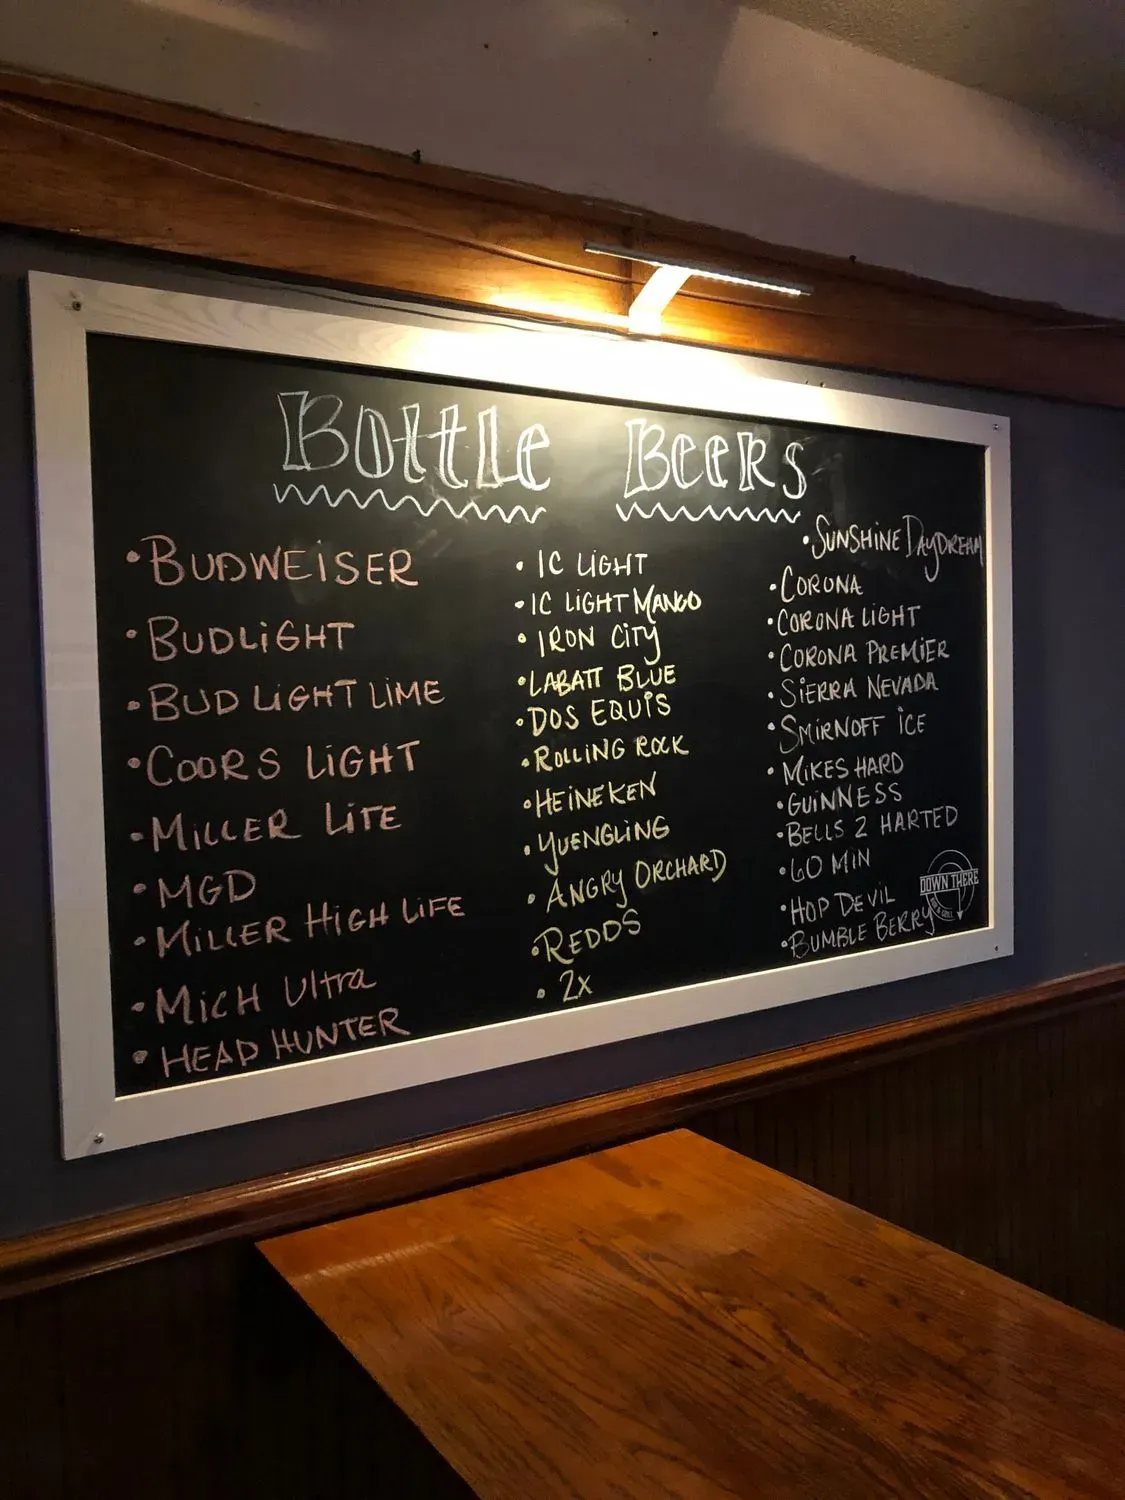 Bottle Beers
• BUDWEISER
• BUDLIGHT
• BUD LIGHT LIME
• COORS LIGHT
• MILLER LITE
• MGD
• MILLER HIGH LIFE
• MICH Ultra
• HEAD HUNTER
• IC LIGHT
• IC LIGHT MANGO
• IRON CITY
• LABATT BLUE
• DOS EQUIS
• ROLLING ROCK
• HEINEKEN
• YUENGLING
• ANGRY ORCHARD
• REDDS
• 2x
• SUNSHINE DAYDREAM
• CORONA
• CORONA LIGHT
• CORONA PREMIER
• SIERRA NEVADA
• SMIRNOFF ICE
• MIKES HARD
• GUINNESS
• BELLS 2 HARTED
• 60 MIN
• HOP DEVIL
• BUMBLE BERRY
DOWN THERE
BAR & GRILL